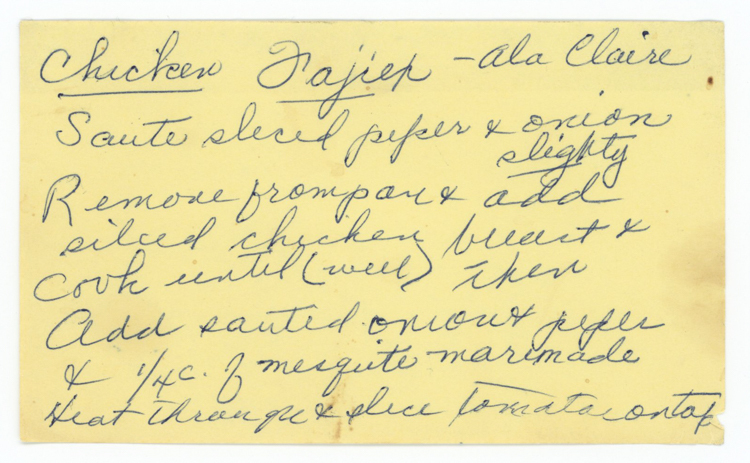 Chicken Fajiep - ala Claire
Saute sliced peper & onion
slighty
Remove from pan & add
silced chicken breast &
Cook until (well) then
Add sauted onion & peper
& 1/4 c. of mesquite marimade
Heat through & slice tomatoe on top